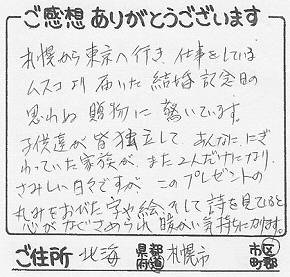 ご感想ありがとうございます
札幌から東京へ行き、仕事をしている
ムスコより届いた結婚記念日の
思わぬ贈物に驚いています。
子供達が皆独立して、あんなににぎ
わっていた家族が、また2人だけになり、
さみしい日々ですが、このプレゼントの
丸みをおびた字や絵、そして詩を見ていると
心がなぐさめられ暖かい気持ちになります。
ご住所 北海 都道府県 札幌市 市区町郡